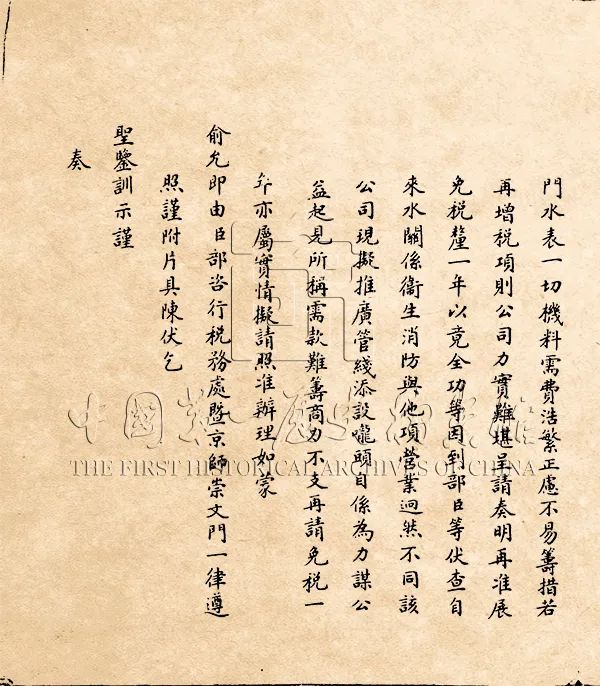 門水表一切機料需費浩繁正慮不易籌措若
再增税項則公司力實難堪呈請奏明再准展
免税釐一年以竟全功等因到部臣等伏查自
來水關係衞生消防與他項營業迥然不同該
公司現擬推廣管綫添設嚨頭自係為力謀公
益起見所稱需款難籌商力不支再請免税一
年亦屬實情擬請照准辦理如蒙
俞允即由臣部咨行税務處暨京師崇文門一律遵
照謹附片具陳伏乞
聖鑒訓示謹
奏
中國第一歷史檔案館
THE FIRST HISTORICAL ARCHIVES OF CHINA